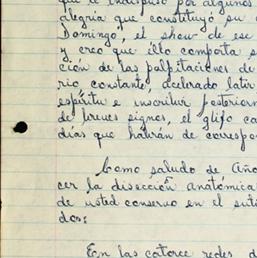 que le indispuso por algunos
alegría que constituyó su
Domingo, el show de ese
y creo que ello comporta s
ción de las palpitaciones de
rio, constante, acelerado latir
espíritu e inscribir posteriorm
de breves signos, el glifo ca
días que habrán de correspo
Como saludo de Año
cer la disección anatómica
de usted conservo en el suti
dos:
En las catorce redes d